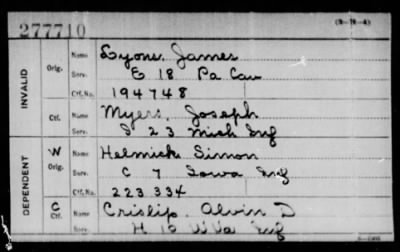 277710
INVALID
Orig.
Name Lyons, James
Serv. E 18 Pa Cav
Ctf. No. 194748
Ctf.
Name Myers, Joseph
Serv. 23 Mich Inf
DEPENDENT
W
Orig.
Name Helmick Simon
Serv. C 7 Iowa Inf
Ctf. No. 223334
C
Ctf.
Name Crislip, Alvin D
Serv. H 10 W Va Inf